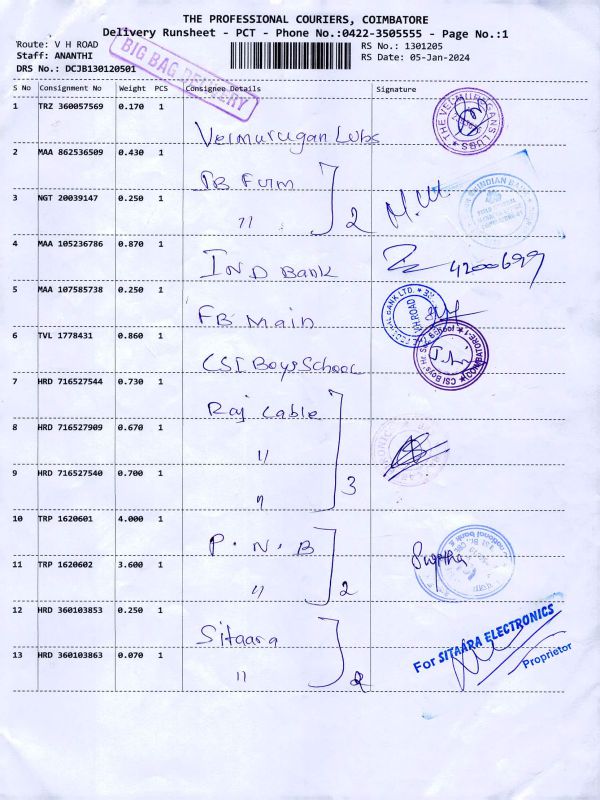 THE PROFESSIONAL COURIERS, COIMBATORE
Delivery Runsheet - PCT - Phone No.:0422-3505555 - Page No.:1
Route: V H ROAD
RS No.: 1301205
Staff: ANANTHI
RS Date: 05-Jan-2024
DRS No.: DCJB130120501
BIG BAG DELIVERY
S No Consignment No Weight PCS Consignee Details Signature
1 TRZ 360057569 0.170 1
Velmurugan Lubs
2 MAA 862536509 0.430 1
3 NGT 20039147 0.250 1
" 2
4 MAA 105236786 0.870 1
IND Bank
4200699
5 MAA 107585738 0.250 1
FB Main
6 TVL 1778431 0.860 1
CSI Boys School
7 HRD 716527544 0.730 1
Raj Cable
8 HRD 716527909 0.670 1
"
9 HRD 716527540 0.700 1
" 3
10 TRP 1620601 4.000 1
P.N.B
11 TRP 1620602 3.600 1
" 2
12 HRD 360103853 0.250 1
Sitaara
13 HRD 360103863 0.070 1
" 2
For SITAARA ELECTRONICS
Proprietor